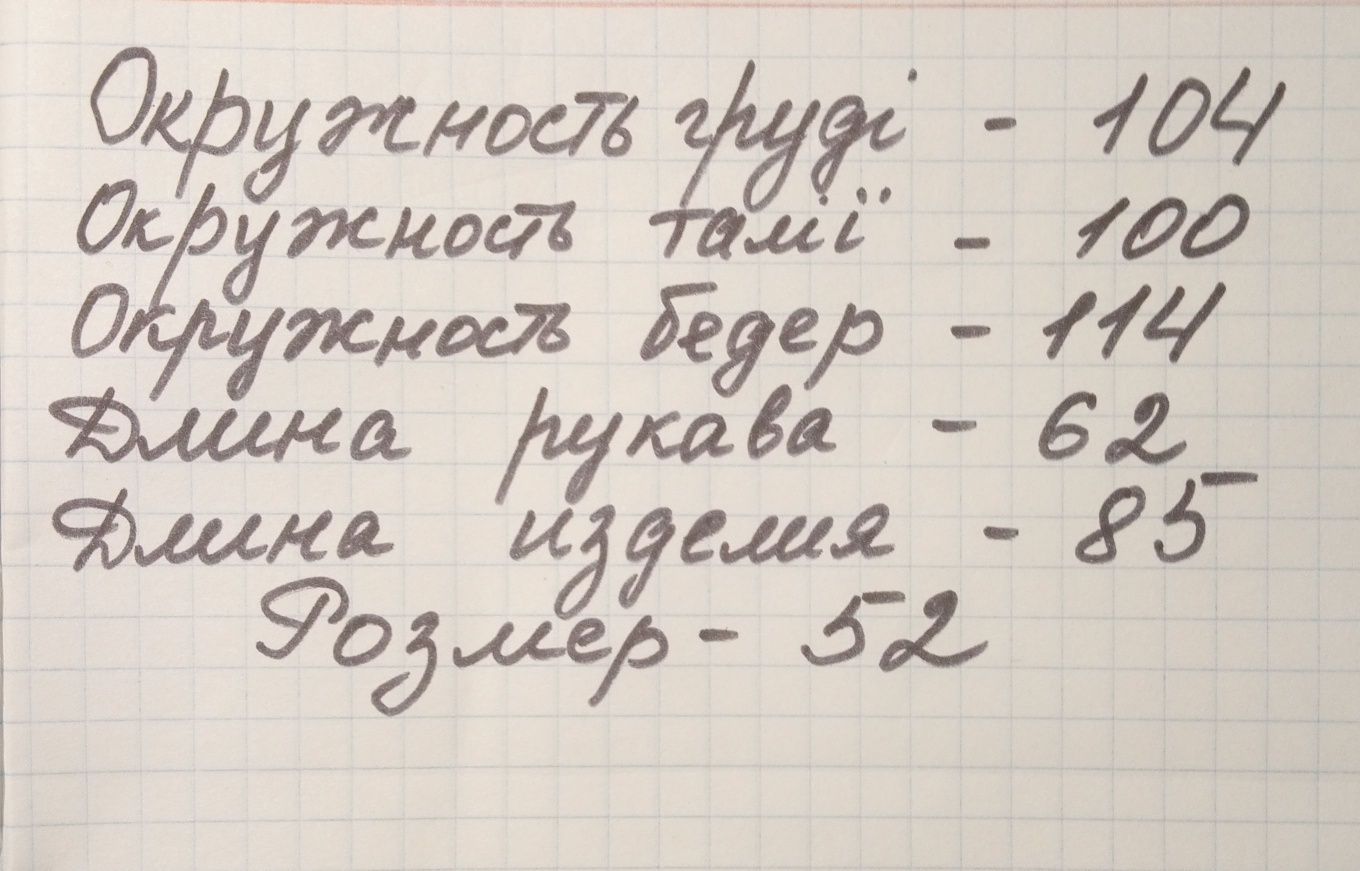 Окружность груді - 104
Окружность талії - 100
Окружность бедер - 114
Длина рукава - 62
Длина изделия - 85
Розмер - 52